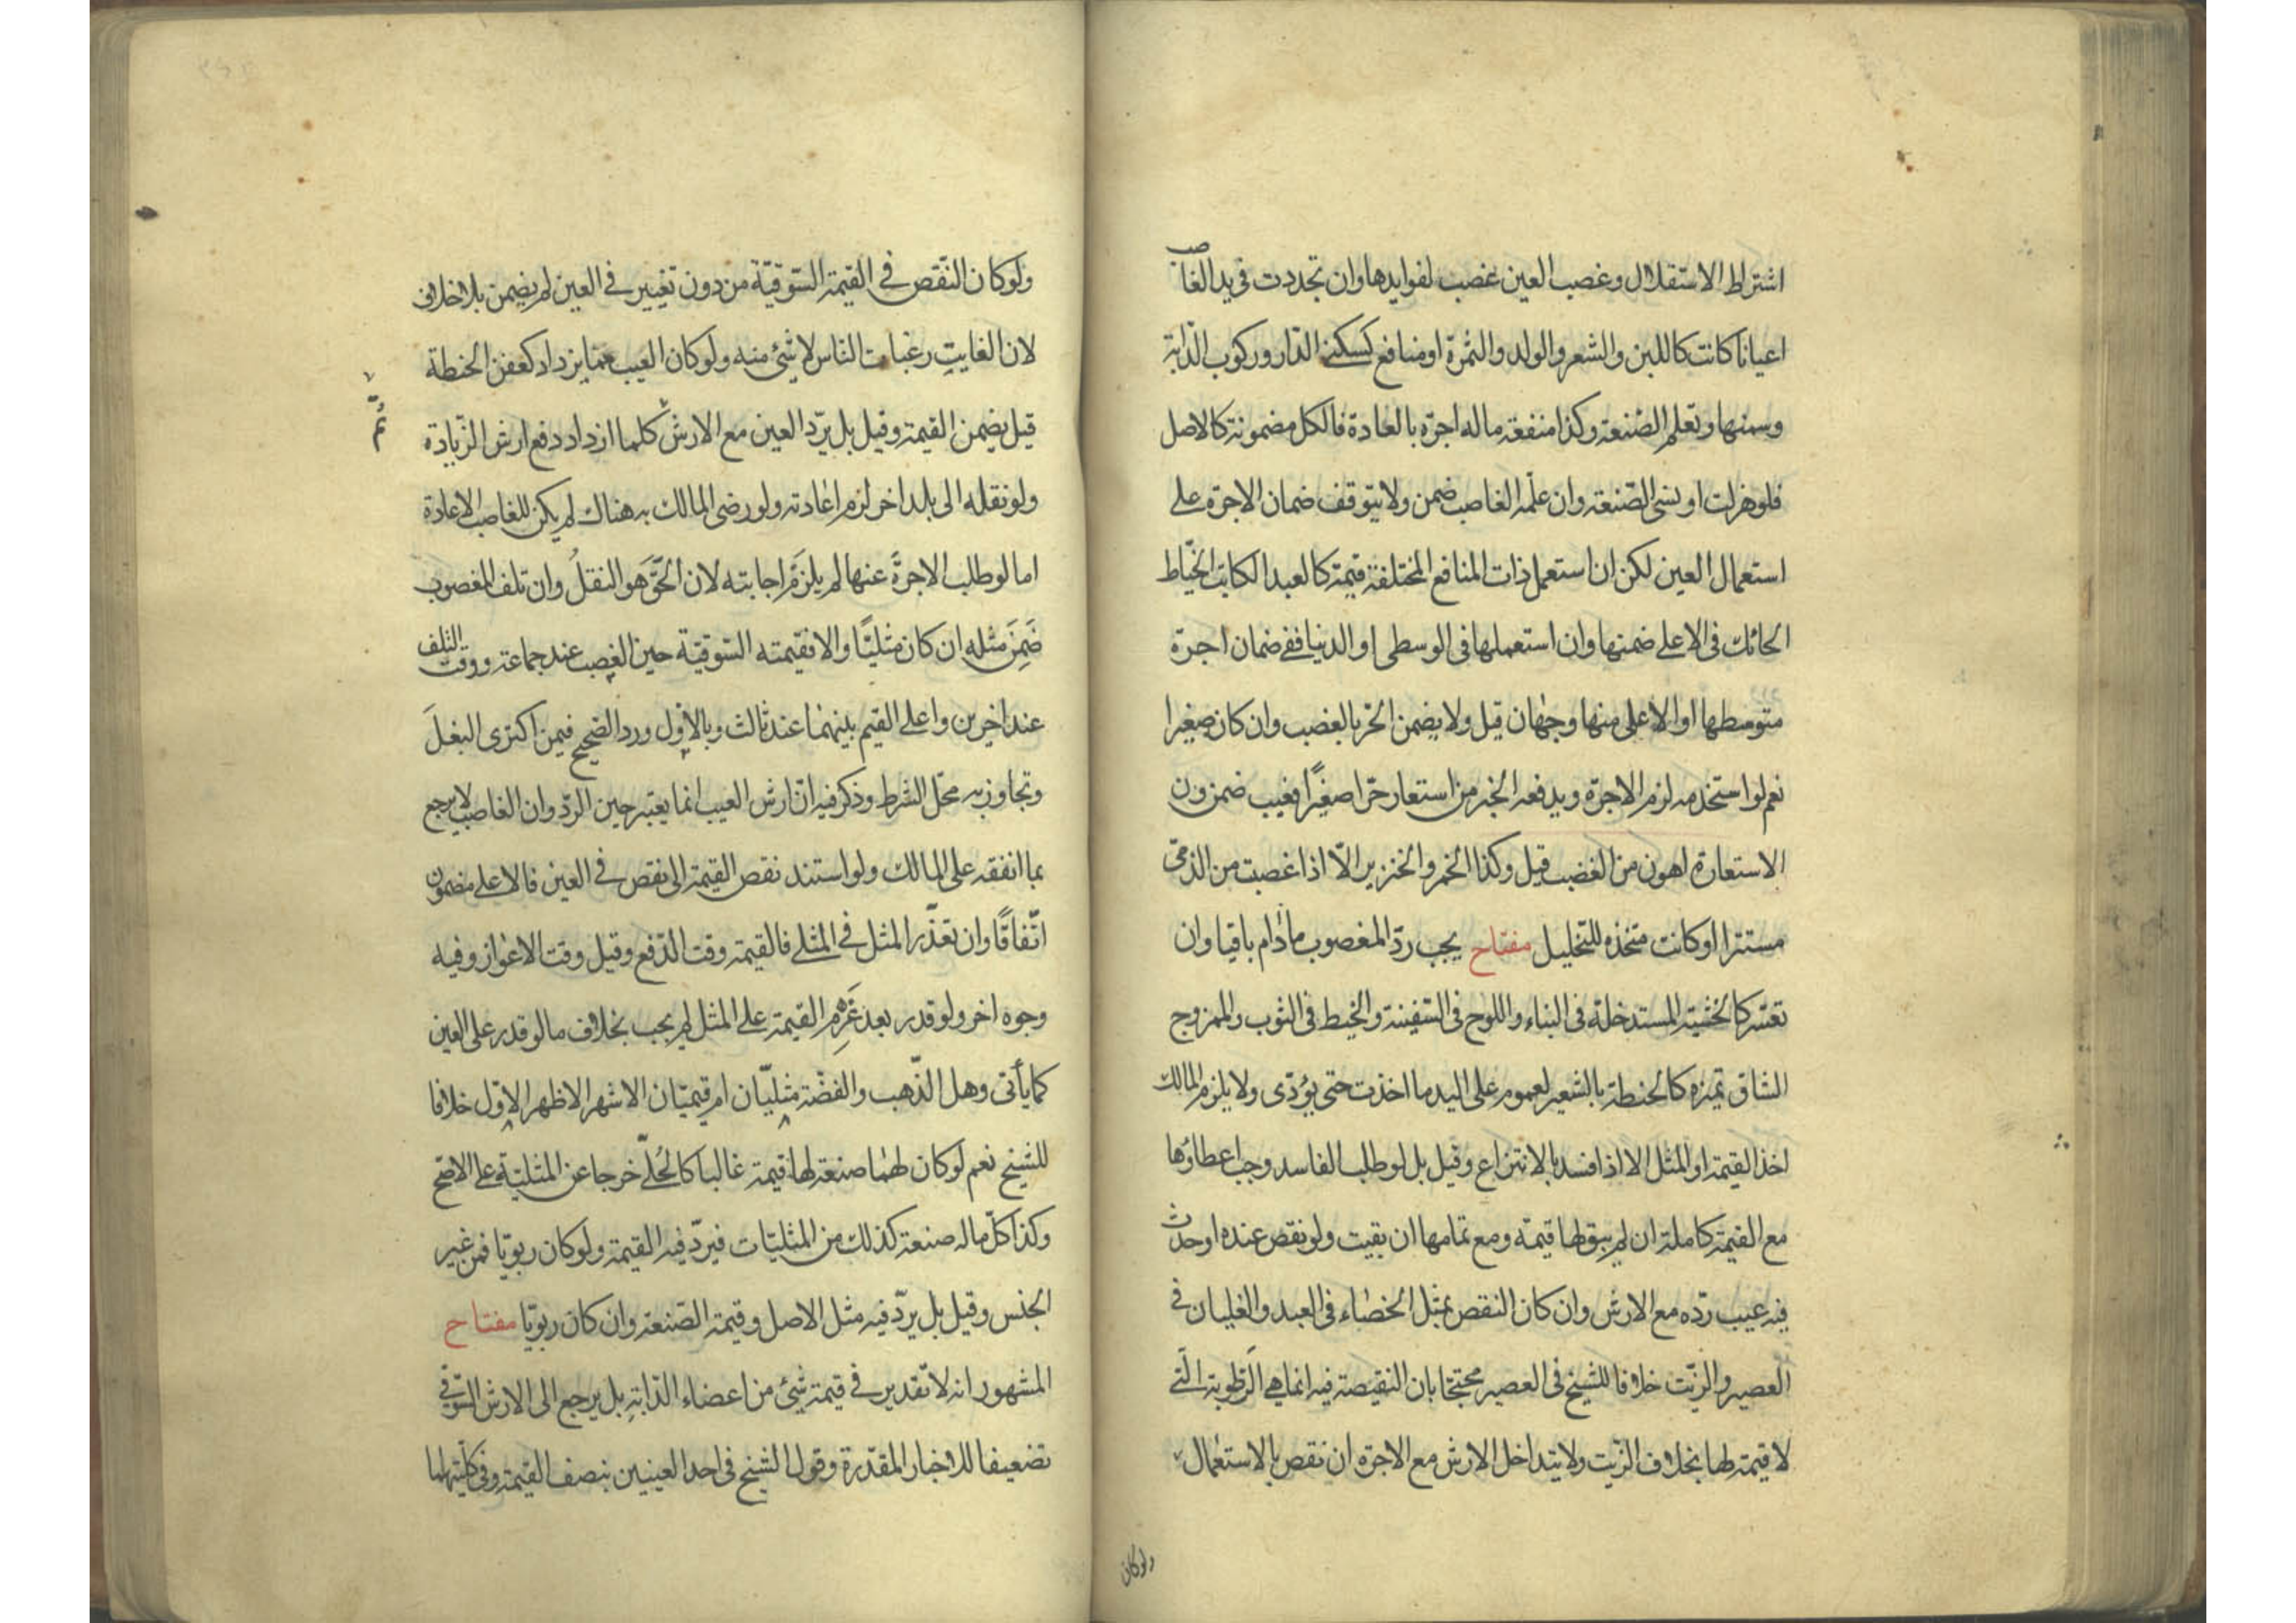 اشتراط الاستقلال وغصب العين غصب لفوايدها وان تجددت فى يد الغاصب
اعيانا كانت كاللبن والشعر والولد والثمرة او منافع كسكنى الدار وركوب الدّابة
وسمنها وتعلم الصنعة وكذا منفعة ما له اجرة بالعادة فالكل مضمونة كالاصل
فلو هزلت او نسى الصّنعة وان علّمه الغاصب ضمن ولا يتوقف ضمان الاجرة على
استعمال العين لكن ان استعمل ذات المنافع المختلفة قيمة كالعبد الكاتب الخيّاط
الحائك فى الاعلى ضمنها وان استعملها فى الوسطى او الدنيا ففى ضمان اجرة
متوسطها او الاعلى منها وجهان قيل ولا يضمن الحر بالغصب وان كان صغيرا
نعم لو استخدمه لزم الاجرة ويدفعه الخبر من استعار حرّا صغيرًا فعيب ضمن ون
الاستعارة اهون من الغصب قيل وكذا الخمر والخنزير الّا اذا غصبت من الذمّى
مستترا او كانت متخذة للتخليل مفتاح يجب ردّ المغصوب مادام باقيا وان
تعسّر كالخشبة المستدخلة فى البناء واللوح فى السّفينة والخيط فى الثوب والممزوج
الشاق تميزه كالحنطة بالشعير لعموم على اليد ما اخذت حتى يؤدّى ولا يلزم المالك
اخذ القيمة او المثل الا اذا فسد بالانتزاع وقيل بل لو طلب الفاسد وجب اعطاؤها
مع القيمة كاملة ان لم يبق لها قيمة ومع تمامها ان بقيت ولو نقص عنده او حدث
فيه عيب ردّه مع الارش وان كان النقص بمثل الخصاء فى العبد والغليان فى
العصير والزّيت خلافا للشيخ فى العصير محتجّا بان النقيصة فيه انما هى الرّطوبة الّتى
لا قيمة لها بخلاف الزّيت ولا يتداخل الارش مع الاجرة ان نقص بالاستعمال
ولو كان
ولو كان النّقص فى القيمة السّوقيّة من دون تغيير فى العين لم يضمن بلا خلاف
لان الفايت رغبات النّاس لا شئ منه ولو كان العيب ممّا يزداد كعفن الحنطة
قيل يضمن القيمة وقيل بل يردّ العين مع الارش كلما ازداد دفع ارش الزّيادة
ثمّ
ولو نقله الى بلد اخر لزم اعادته ولو رضى المالك به هناك لم يكن للغاصب الاعادة
اما لو طلب الاجرةَ عنها لم يلزَم اجابته لان الحَّقَ هو النقلُ وان تلف المغصوب
ضَمِنَ مثله ان كان مثليًّا والا فقيمته السّوقيّة حين الغصب عند جماعة ووقت التلف
عند اخرين واعلى القيم بينهما عند ثالث وبالاول ورد الصّحيح فيمن اكترى البغلَ
وتجاوز به محلّ الشرط وذكر فيه انّ ارش العيب انما يعتبر حين الردّ وان الغاصب لا يرجع
بما انفقه على المالك ولو استند نقص القيمة الى نقص فى العين فالاعلى مضمون
اتّفاقًا وان تعذّر المثل فى المثلى فالقيمة وقت الدّفع وقيل وقت الاعواز وفيه
وجوه اخر ولو قدر بعد غَرمه القيمة على المثل لم يجب بخلاف ما لو قدر على العين
كما يأتى وهل الذّهب والفضّة مثليّان ام قيميّان الاشهر الاظهر الاوّل خلافا
للشيخ نعم لو كان لهما صنعة لها قيمة غالبا كالحُلىّ خرجا عن المثليّة على الاصّح
وكذا كلّ ما له صنعة كذلك من المثليّات فيردّ فيه القيمة ولو كان ربويّا فمن غير
الجنس وقيل بل يردّ فيه مثل الاصل وقيمة الصّنعة وان كان ربويّا مفتاح
المشهور انه لا تقدير فى قيمة شئ من اعضاء الدّابة بل يرجع الى الارش السّوقى
تضعيفا للاخبار المقدّرة وقول الشيخ فى احد العينين بنصف القيمة وفى كلتيهما